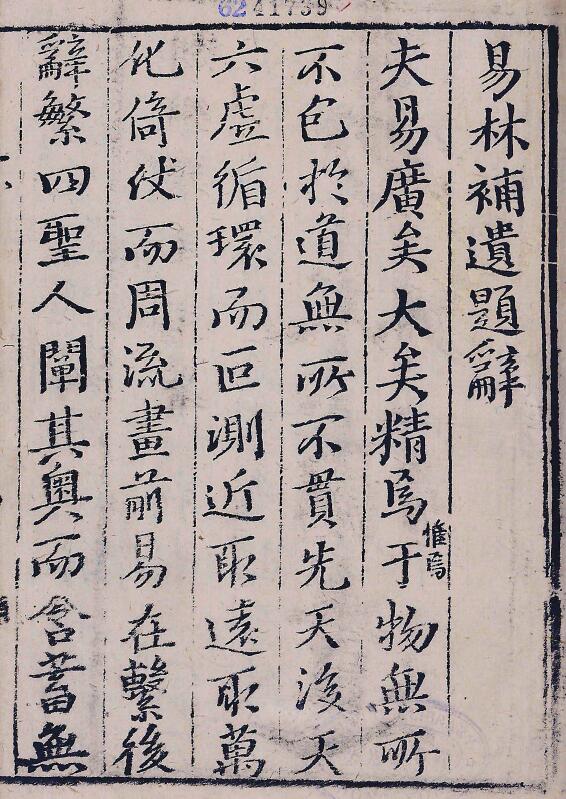 6241739
易林補遺題辭
夫易廣矣大矣精焉惟焉于物無所
不包於道無所不貫先天後天
六虛循環而叵測近取遠取萬
化倚伏而周流畫前易在繫後
辭繁四聖人闡其奥而含蓄無